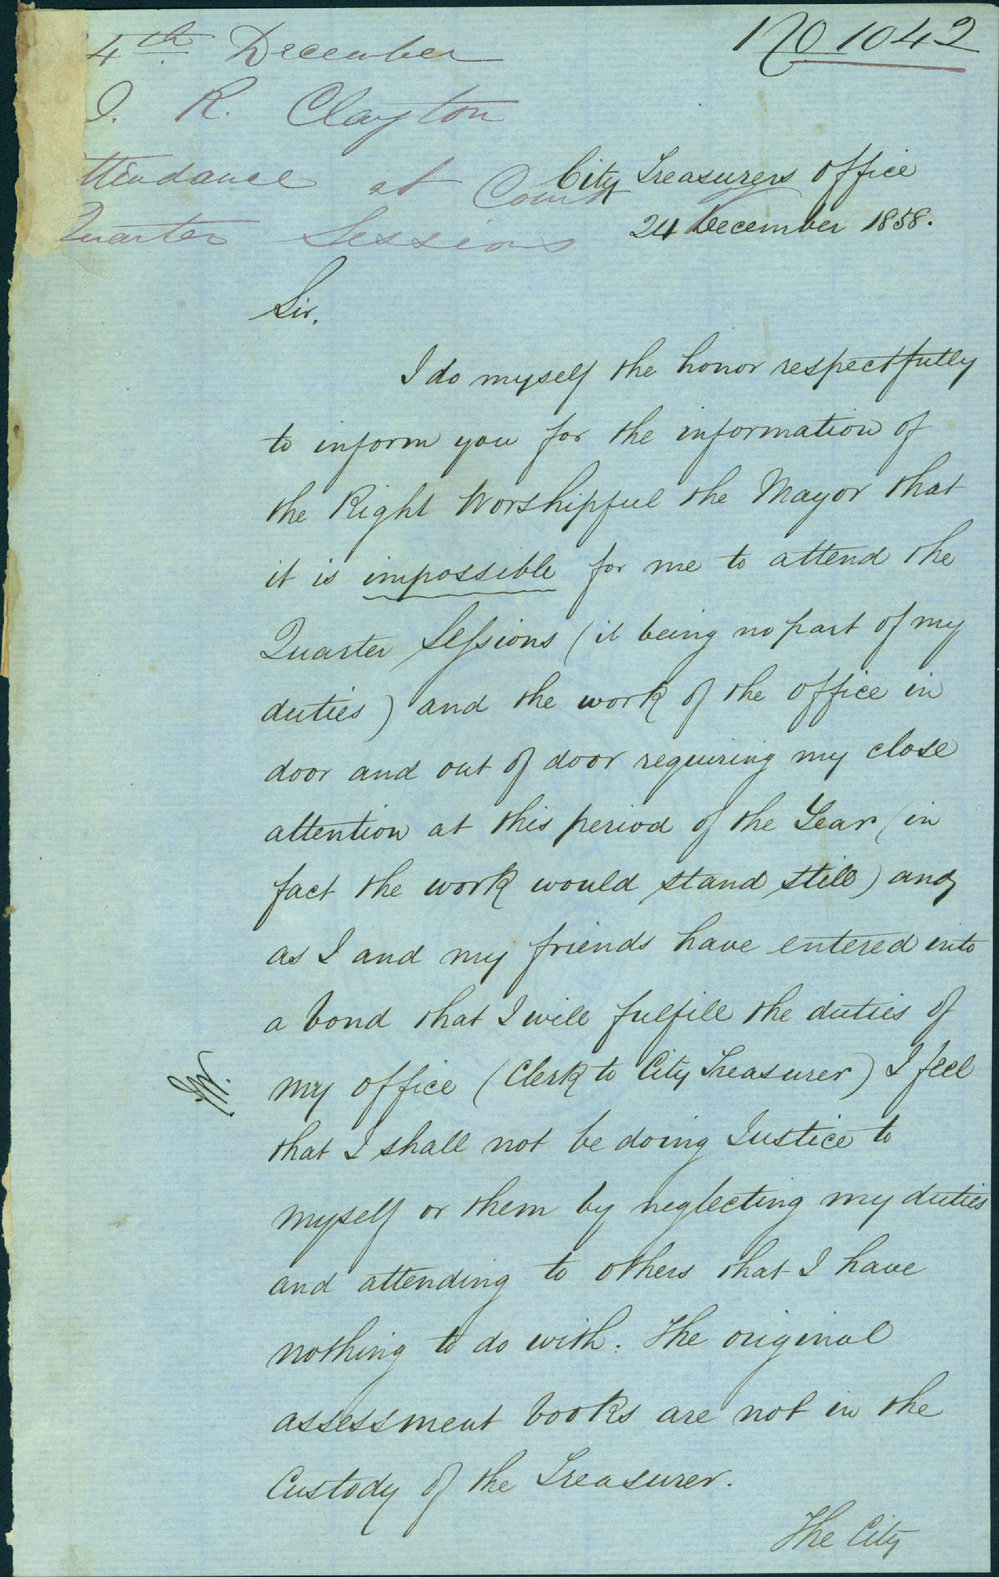 No 1042
4th December
J. R. Clayton
ttendance at Court
Quarter Sessions
City Treasurers Office
24 December 1858.
Sir,
I do myself the honor respectfully
to inform you for the information of
the Right Worshipful the Mayor that
it is impossible for me to attend the
Quarter Sessions (it being no part of my
duties) and the work of the office in
door and out of door requiring my close
attention at this period of the Year (in
fact the work would stand still) and
as I and my friends have entered into
a bond that I will fulfill the duties of
my office (Clerk to City Treasurer) I feel
that I shall not be doing Justice to
myself or them by neglecting my duties
and attending to others that I have
nothing to do with. The original
assessment books are not in the
Custody of the Treasurer.
The City